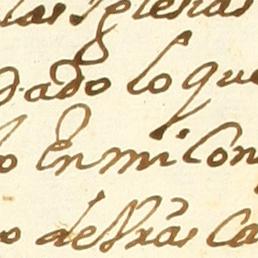 las Iglesias
dado lo que
lo En mi Con
o de Nrãs Ca